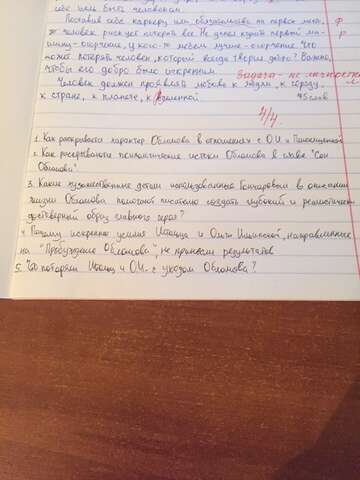 себе или быть человеком.
Поставив себе карьеру или обязательства на первое место,
человек рискует потерять все. Не успел купить первой ма-
шину - огорчение, у кого-то мебель лучше - огорчение. Что
может потерять человек, который всегда творит добро? Важно,
чтобы его добро было искренним.
Человек должен проявлять любовь к людям, к городу,
к стране, к планете, к
4/4.
1. Как раскрывается характер Обломова в отношениях с О.И. и Пшеницыной
2. Как раскрываются психологические истоки Обломова в главе "Сон
Обломова"
3. Какие художественные детали использованные Гончаровым в описании
жизни Обломова помогают писателю создать глубокий и реалистически
достоверный образ главного героя?
4. Почему искренние усилия Штольца и Ольги Ильинской, направленные
на "Пробуждение Обломова", не принесли результатов
5. Что потеряли Штольц и О.И. с уходом Обломова?